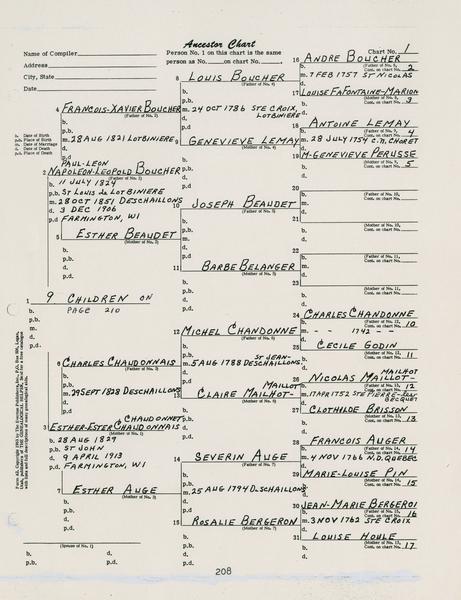 Ancestor Chart
Name of Compiler
Address
City, State
Date
Person No. 1 on this chart is the same
person as No. on chart No.
Chart No. 1
b. Date of Birth
p.b. Place of Birth
m. Date of Marriage
d. Date of Death
p.d. Place of Death
1 9 CHILDREN ON
PAGE 210
b.
p.b.
m.
d.
p.d.
(Spouse of No. 1)
b.
d.
p.b.
p.d.
PAUL-LEON
2 NAPOLEON-LEOPOLD BOUCHER
(Father of No. 1)
b. 11 JULY 1824
p.b. ST LOUIS de LOTBINIERE
m. 28 OCT 1851 DESCHAILLONS
d. 3 DEC 1906
p.d. FARMINGTON, WI
CHAUDONNET
3 ESTHER-ESTER CHAUDONNAIS
(Mother of No. 1)
b. 28 AUG 1829
p.b. ST JOHN
d. 9 APRIL 1913
p.d. FARMINGTON, WI
4 FRANCOIS-XAVIER BOUCHER
(Father of No. 2)
b.
p.b.
m. 28 AUG 1821 LOTBINIERE
d.
p.d.
5 ESTHER BEAUDET
(Mother of No. 2)
b.
p.b.
d.
p.d.
6 CHARLES CHAUDONNAIS
(Father of No. 3)
b.
p.b.
m. 29 SEPT 1828 DESCHAILLONS
d.
p.d.
7 ESTHER AUGE
(Mother of No. 3)
b.
p.b.
d.
p.d.
8 LOUIS BOUCHER
(Father of No. 4)
b.
p.b.
m. 24 OCT 1786 STE CROIX,
LOTBINIERE
d.
p.d.
9 GENEVIEVE LEMAY
(Mother of No. 4)
b.
p.b.
d.
p.d.
10 JOSEPH BEAUDET
(Father of No. 5)
b.
p.b.
m.
d.
p.d.
11 BARBE BELANGER
(Mother of No. 5)
b.
p.b.
d.
p.d.
12 MICHEL CHANDONNE
(Father of No. 6)
b.
p.b.
ST JEAN-
m. 5 AUG 1788 DESCHAILLONS.
d.
p.d.
MAILLOT
13 CLAIRE MAILHOT-
(Mother of No. 6)
b.
p.b.
d.
p.d.
14 SEVERIN AUGE
(Father of No. 7)
b.
p.b.
m. 25 AUG 1794 DESCHAILLONS
d.
p.d.
15 ROSALIE BERGERON
(Mother of No. 7)
b.
p.b.
d.
p.d.
16 ANDRE BOUCHER
(Father of No. 8,
Cont. on chart No. 2
b.
m. 7 FEB 1757 ST NICOLAS
d.
17 LOUISE FAFONTAINE-MARION
(Mother of No. 8,
Cont. on chart No. 3
b.
d.
18 ANTOINE LEMAY
(Father of No. 9,
Cont. on chart No. 4
b.
m. 28 JULY 1754 C.N. CHORET
d.
19 M-GENEVIEVE PERUSSE
(Mother of No. 9,
Cont. on chart No. 5
b.
d.
20
(Father of No. 10,
Cont. on chart No.
b.
m.
d.
21
(Mother of No. 10,
Cont. on chart No.
b.
d.
22
(Father of No. 11,
Cont. on chart No.
b.
m.
d.
23
(Mother of No. 11,
Cont. on chart No.
b.
d.
24 CHARLES CHANDONNE
(Father of No. 12,
Cont. on chart No. 10
b.
m. - - 1742 - -
d.
25 CECILE GODIN
(Mother of No. 12,
Cont. on chart No. 11
b.
d.
MAILHOT
26 NICOLAS MAILLOT-
(Father of No. 13,
Cont. on chart No. 12
b.
m. 17 APR 1752 STE PIERRE-les
BECQUET
d.
27 CLOTHILDE BRISSON
(Mother of No. 13,
Cont. on chart No. 13
b.
d.
28 FRANCOIS AUGER
(Father of No. 14,
Cont. on chart No. 14
b.
m. 4 NOV 1766 N.D. QUEBEC
d.
29 MARIE-LOUISE PIN
(Mother of No. 14,
Cont. on chart No. 15
b.
d.
30 JEAN-MARIE BERGEROI
(Father of No. 15,
Cont. on chart No. 16
b.
m. 3 NOV 1762 STE CROIX
d.
31 LOUISE HOULE
(Mother of No. 15,
Cont. on chart No. 17
b.
d.
208